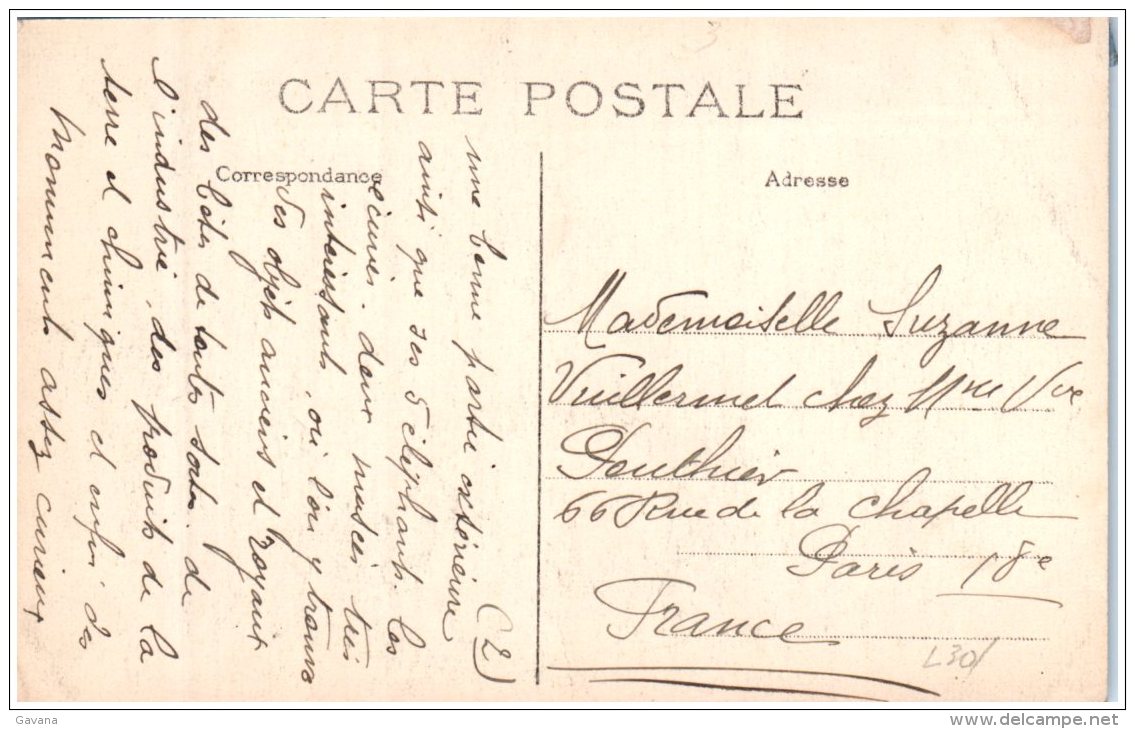 CARTE POSTALE
Correspondance
Adresse
(2)
une bonne partie extérieure
ainsi que ses 5 éléphants. les
écuries, deux musées très
intéressants, où l'on y trouve
des objets anciens et royaux
des bêtes de toutes sortes. de
l'industrie, des produits de la
terre et chimiques et enfin des
Monuments assez curieux
Mademoiselle Suzanne
Vuillermet chez Mme Vve
66 Rue de la Chapelle
Paris 18e
France
L30/
Gavana
www.delcampe.net